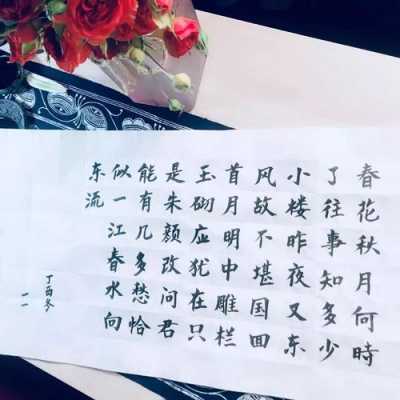 春花秋月何時
了往事知多少
小楼昨夜又东
风故不堪国回
首月明中雕栏
玉砌应犹在只
是朱颜改问君
能有几多愁恰
似一江春水向
东流
丁酉冬